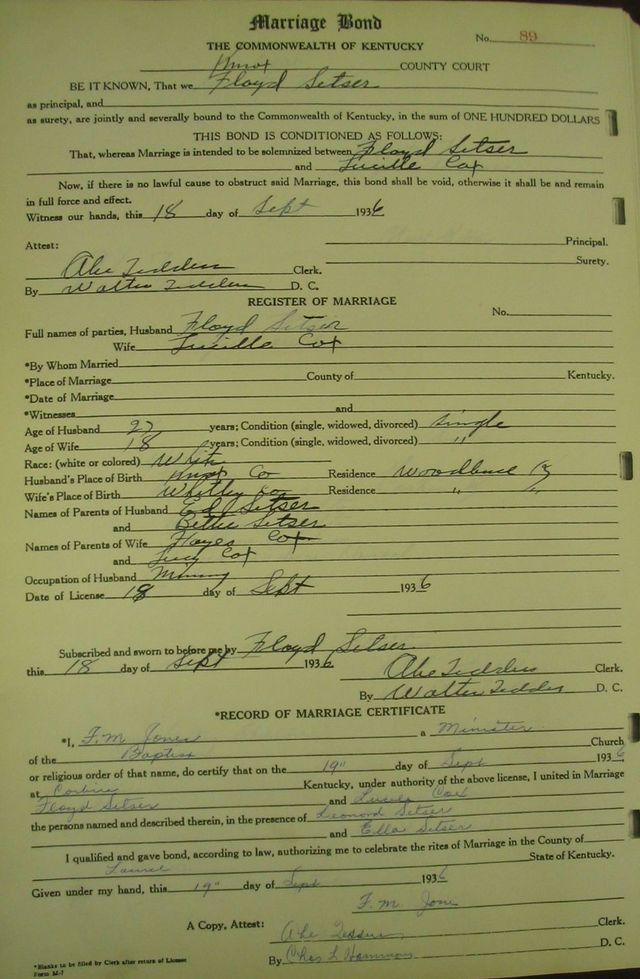 Marriage Bond
No. 89
THE COMMONWEALTH OF KENTUCKY
Knox COUNTY COURT
BE IT KNOWN, That we Floyd Setser
as principal, and
as surety, are jointly and severally bound to the Commonwealth of Kentucky, in the sum of ONE HUNDRED DOLLARS
THIS BOND IS CONDITIONED AS FOLLOWS:
That, whereas Marriage is intended to be solemnized between Floyd Setser
and Lucille Cox
Now, if there is no lawful cause to obstruct said Marriage, this bond shall be void, otherwise it shall be and remain
in full force and effect.
Witness our hands, this 18 day of Sept 1936
Principal.
Attest:
Surety.
Abe Tedders Clerk.
By Walter Tedders D. C.
REGISTER OF MARRIAGE
No.
Full names of parties, Husband Floyd Setser
Wife Lucille Cox
*By Whom Married
*Place of Marriage County of Kentucky.
*Date of Marriage
*Witnesses and
Age of Husband 27 years; Condition (single, widowed, divorced) Single
Age of Wife 18 years; Condition (single, widowed, divorced) "
Race: (white or colored) White
Husband's Place of Birth Knox Co Residence Woodbine Ky
Wife's Place of Birth Whitley Co Residence " "
Names of Parents of Husband Ed Setser
and Bettie Setser
Names of Parents of Wife Hayes Cox
and Lucy Cox
Occupation of Husband Mining
Date of License 18 day of Sept 1936
Subscribed and sworn to before me by Floyd Setser
this 18 day of Sept 1936
Abe Tedders Clerk.
By Walter Tedders D. C.
*RECORD OF MARRIAGE CERTIFICATE
*I, F. M. Jones a Minister
of the Baptist Church
or religious order of that name, do certify that on the 19" day of Sept 1936
at Corbin Kentucky, under authority of the above license, I united in Marriage
Floyd Setser and Lucile Cox
the persons named and described therein, in the presence of Leonord Setser
and Ella Setser
I qualified and gave bond, according to law, authorizing me to celebrate the rites of Marriage in the County of
Laurel State of Kentucky.
Given under my hand, this 19" day of Sept 1936
F. M. Jones
A Copy, Attest: Abe Tedders Clerk.
By Chas L Hammons D. C.
*Blanks to be filled by Clerk after return of License
Form M-7